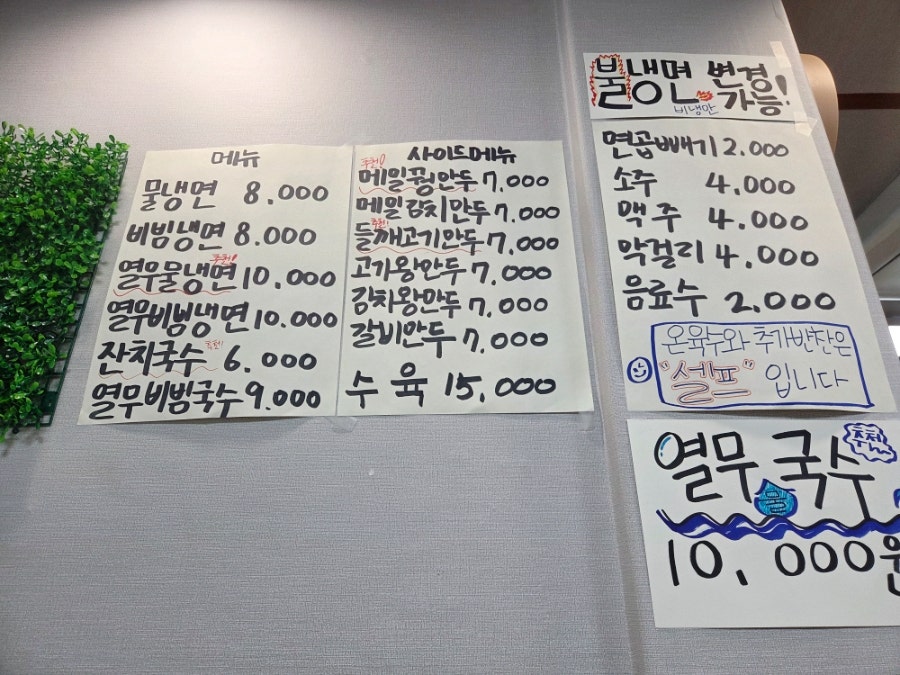 메뉴
물냉면 8.000
비빔냉면 8.000
추천!
열무물냉면 10.000
열무비빔냉면 10.000
추천!
잔치국수 6.000
열무비빔국수 9.000
사이드메뉴
추천!
메밀꿩만두 7,000
메밀김치만두 7,000
추천!
들깨고기만두 7,000
고기왕만두 7,000
김치왕만두 7,000
갈비만두 7,000
수육 15,000
불냉면 변경
비냉만 가능!
면곱빼기 2.000
소주 4,000
맥주 4,000
막걸리 4,000
음료수 2,000
온육수와 추가반찬은
"셀프" 입니다
추천
열무국수
10,000원